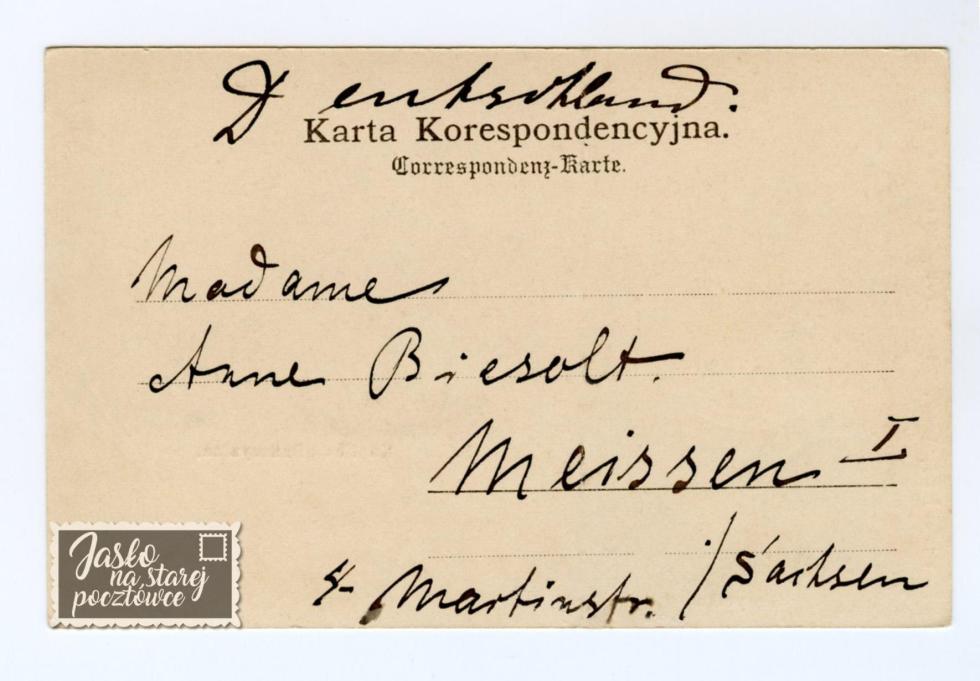 Deutschland.
Karta Korespondencyjna.
Correspondenz-Karte.
Madame
Anne Biesolt.
Meissen I
/Sachsen
Martinstr.
Jasło
na starej
pocztówce